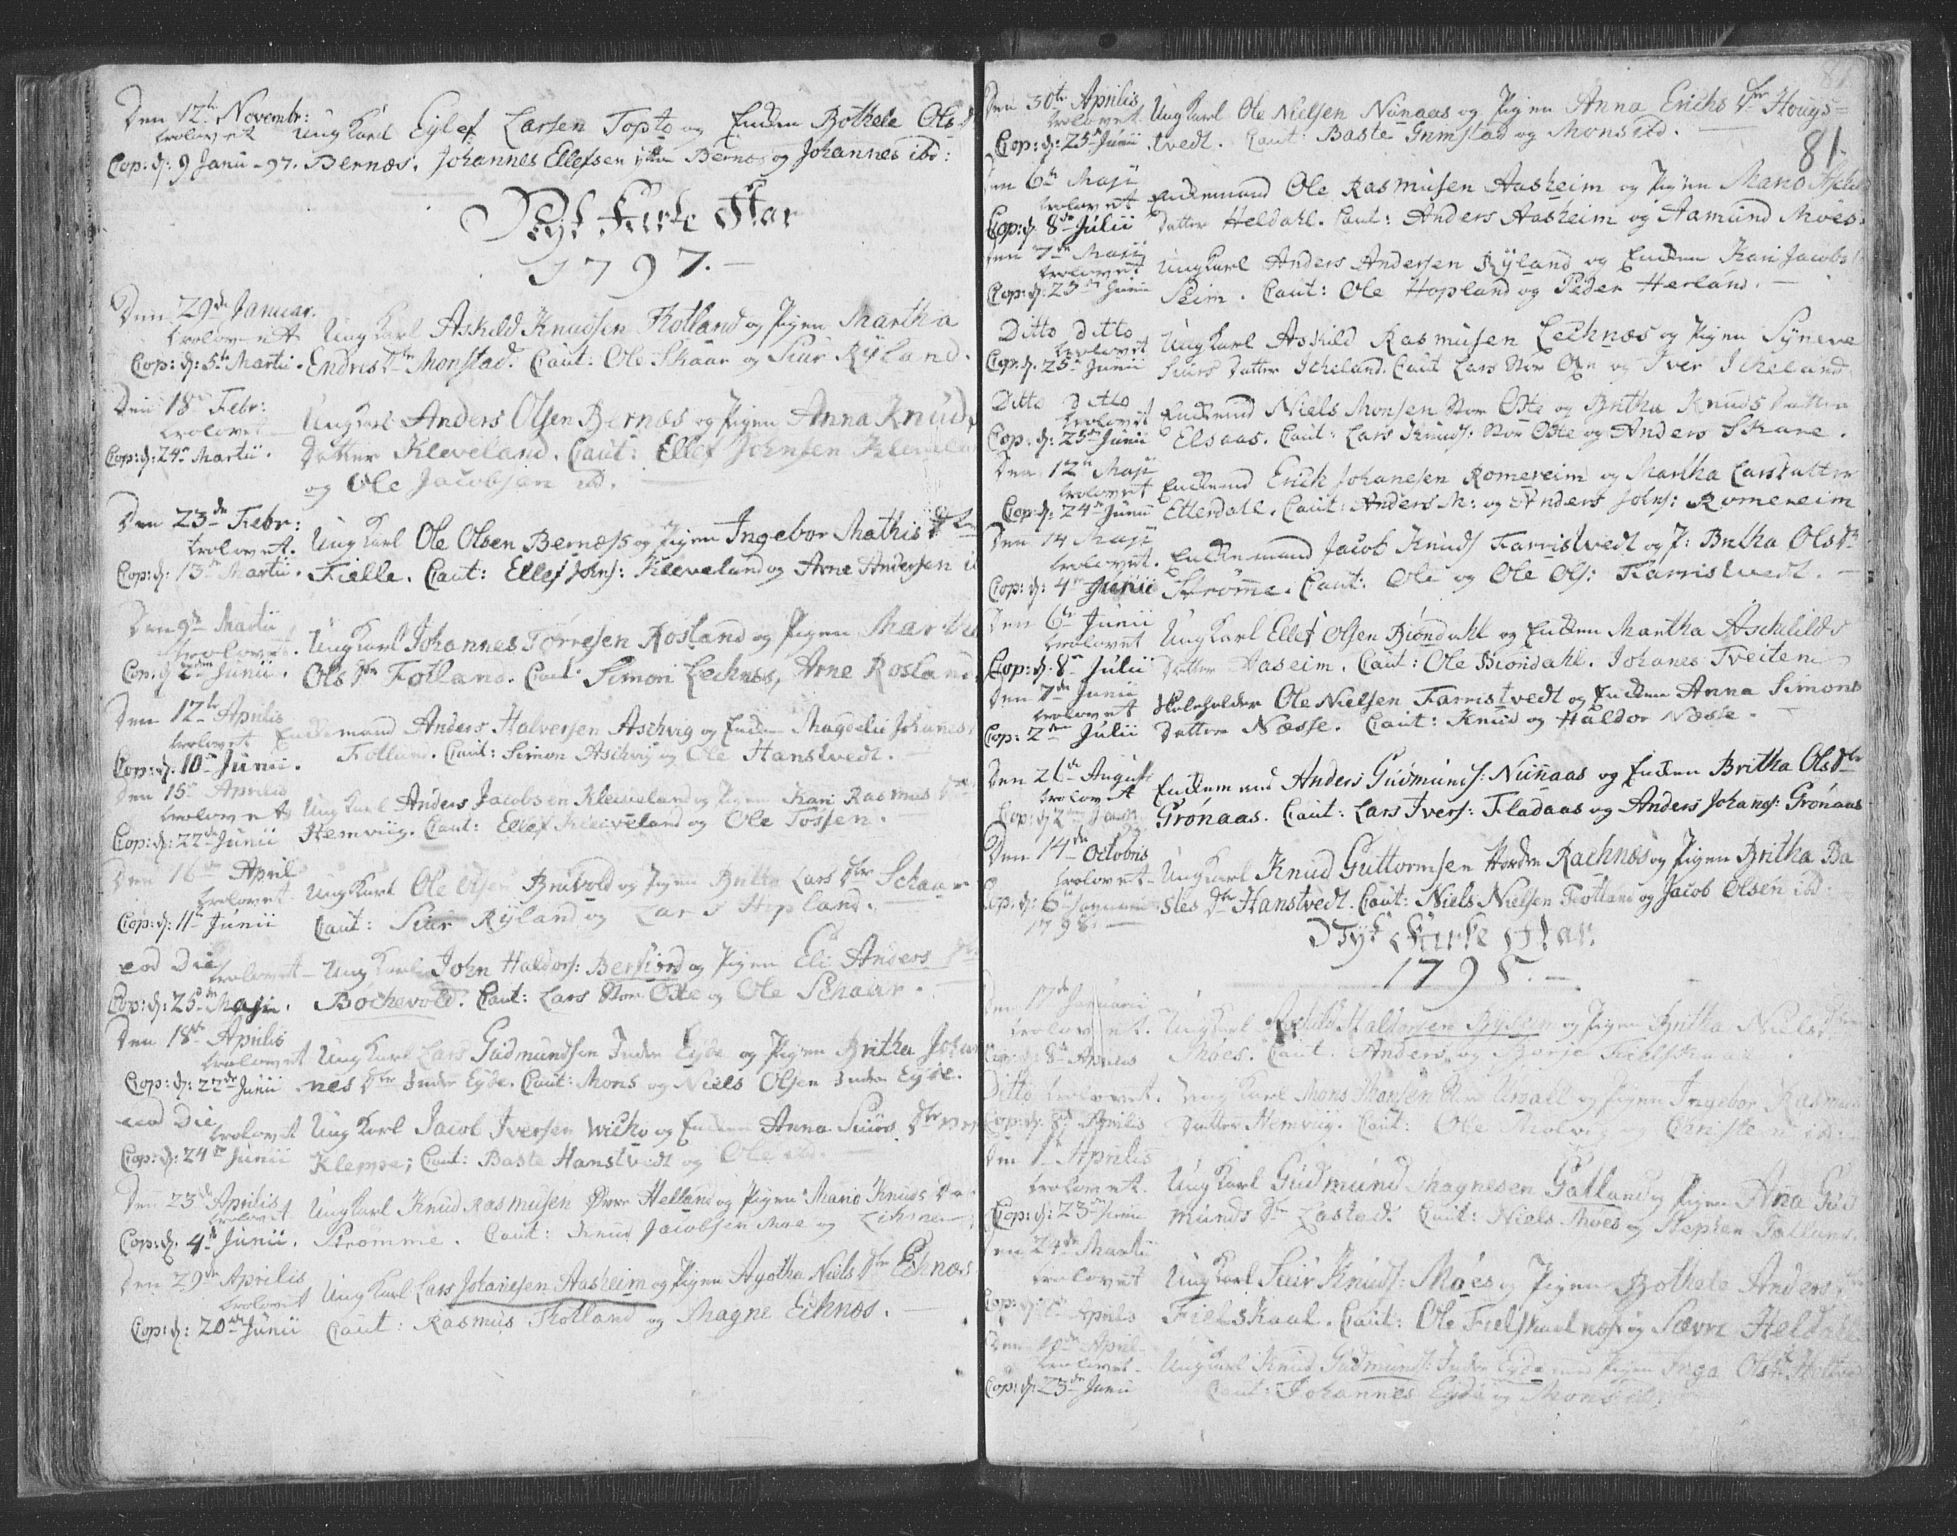 Den 12te Novembr:
trolovet Ungkarl Eylef Larsen Topto og Enken Bothele Ols D
Cop: d: 9 Janu - 97. Bernæs. Johannes Ellefsen Bernæs og Johannes ibd:
Nyt Kirke Aar
1797.
Den 29de Januar.
trolovet Ungkarl Askild Knudsen Fotland og Pigen Martha
Cop: d: 5te Martii. Endris Dtr Monstad. Caut: Ole Skaar og Siur Ryland.
Den 18de Febr:
trolovet Ungkarl Anders Olsen Bernæs og Pigen Anna Knuds
Cop: d: 24de Martii. Datter Kleveland. Caut: Ellef Johnsen Klevela
og Ole Jacobsen ibd.
Den 23de Febr:
trolovet. Ungkarl Ole Olsen Bernæss og Pigen Ingebor Mathis Dtr
Cop: d: 13de Martii. Fielle. Caut: Ellef Johns: Kleveland og Arne Andersen i
Den 9de Martii
trolovet. Ungkarl Johannes Torresen Rosland og Pigen Martha
Cop: d 2den Junii. Ols Dtr Fotland. Caut. Simon Lechnes, Arne Rosland
Den 12te Aprilis
trolovet Enkemand Anders Halversen Aschvig og Enken Magdeli Johanes
Cop: d. 10de Junii. Fotland. Caut: Simon Aschvig og Ole Hanstvedt.
Den 15de Aprilis
trolovet Ungkarl Anders Jacobsen Kleiveland og Pigen Kari Rasmus Dtr
Cop: d: 22de Junii Hemviig. Caut: Ellef Kleiveland og Ole Tossen.
Den 16de April
trolovet Ungkarl Ole Olsen Brubold og Pigen Britta Lars Dtr Schaar
Cop: d: 11te Junii Caut: Siur Ryland og Lars Hopland.
eod Die
trolovet - Ungkarl John Haldors: Berfiord og Pigen Eli Anders Dtr
Cop: d: 25de Maji. Böchevold. Caut: Lars Stor Oxe og Ole Schaar.
Den 18de Aprilis
trolovet Ungkarl Lars Gudmundsen Indre Eyde og Pigen Britha Johan
Cop: d: 22de Junii nes Dtr Indre Eyde. Caut: Mons og Niels Olsen Indre Eyde.
eod Die
trolovet Ungkarl Jacob Iversen Wicho og Enken Anna Siurs Dtr
Cop: d: 24de Junii Klempe; Caut: Baste Hanstvedt og Ole ibd.
Den 23de Aprilis
trolovet Ungkarl Knud Rasmusen Øvre Helland og Pigen Mario Knuds Dtr
Cop: d. 4de Junii. Strömme. Caut: Knud Jacobsen Moe og
Den 29de Aprilis
trolovet Ungkarl Lars Johanesen Aasheim og Pigen Agotha Niels Dtr Echnæs
Cop: d: 20de Junii Caut: Rasmus Fotland og Magne Echnæs.
81.
Den 30te Aprilis
trolovet Ungkarl Ole Nielsen Nunaas og Pigen Anna Erichs Dtr Hougs=
Cop: d: 25de Junii tvedt. Caut: Baste Grimstad og Mons ibd.
Den 6te Maji
trolovet Enkemand Ole Rasmusen Aasheim og Pigen Mario
Cop: d. 8de Julii Datter Heldahl. Caut: Anders Aasheim og Aamund Moes:
Den 7de Maji
trolovet Ungkarl Anders Andersen Ryland og Enken Kari Jacobs
Cop: d: 23de Junii Seim. Caut: Ole Hopland og Peder Herland.
Ditto Ditto
trolovet Ungkarl Askild Rasmusen Lechnæs og Pigen Syneve
Cop: d. 25de Junii Siurs Datter Icheland. Caut Lars Stor Oxe og Iver Icheland
Ditto ditto
trolovet Enkemd Niels Monsen Stor Oxe og Britha Knuds Datter
Cop: d: 25de Junii Elsaas. Caut: Lars Knuds: Stor Oxe og Anders Skare.
Den 12te Maji
trolovet Enkemd Erich Johanesen Romereim og Martha Larsdatter
Cop: d: 24de Junii Etterdall. Caut: Anders M: og Anders Johns: Romereim
Den 14 Maji
trolovet. Enkemand Jacob Knuds Farristvedt og P: Britha Ols Dtr
Cop: d: 4de Junii Strömme. Caut: Ole og Ole Ols: Farristvedt.
Den 6te Junii
trolovet Ungkarl Ellef Olsen Biöndahl og Enken Martha Aschilds
Cop: d. 8de Julii Datter Haseim. Caut: Ole Biöndahl. Johanes Tveiten
Den 7de Junii
trolovet Skoleholder Ole Nielsen Farristvedt og Enken Anna Simons
Cop: 2den Julii Datter Næsse. Caut: Knud og Haldor Næsse.
Den 21de August
trolovet Enkemand Anders Gudmunds: Nunaas og Enken Britha Ols Dtr
Grönaas. Caut: Lars Ivers: Fladaas og Anders Johans: Grönaas
Den 14de Octobris
trolovet - Ungkarl Knud Guttormsen Hordre Rachnæs og Pigen Britha Ba
Cop: d: 6te Januarii stes Dtr Hanstvedt. Caut: Niels Nielsen Fotland og Jacob Olsen ibd:
1798.
Nyt Kirke Aar.
1798.
Den 17de Januarii
trolovet. Ungkarl Haldorsen og Pigen Britha Niels
Cop: d: 8de Aprilis Moes. Caut Anders og Börje Fielskaal
Ditto trolovet. Ungkarl Mons Monsen Urdall og Pigen Ingebor Rasmus
Cop: d: 8de Aprilis Datter Hemviig. Caut: Ole Molvig og Christen ibd.
Den 1te Aprilis
trolovet. Ungkarl Gudmund Magnesen Fotland og Pigen Ana Gud
Cop: d: 23de Junii munds Dtr Lastad. Caut: Niels Moes og Stephen Fotland.
Den 24de Martii
trolovet Ungkarl Siur Knuds: Moes og Pigen Bothele Anders
Aprilis Fielskaal. Caut: Ole Fielskaal og Sævre Heldahl
Den 10de April
trolovet - Ungkarl Knud Gudmunds: Indre Eyde med Pigen Inga Ols Dtr
Cop: d: 23de Junii Caut: Johannes Eyde og Mons ibd.